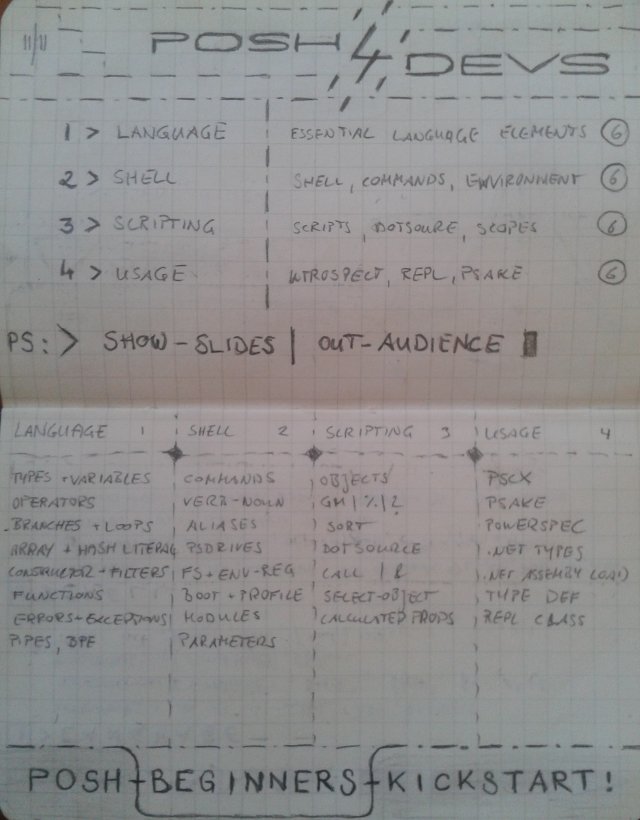 11/11
POSH 4 DEVS
1 > LANGUAGE ESSENTIAL LANGUAGE ELEMENTS 6
2 > SHELL SHELL, COMMANDS, ENVIRONMENT 6
3 > SCRIPTING SCRIPTS, DOTSOURE, SCOPES 6
4 > USAGE INTROSPECT, REPL, PSAKE 6
PS:> SHOW-SLIDES | OUT-AUDIENCE
LANGUAGE 1 SHELL 2 SCRIPTING 3 USAGE 4
TYPES + VARIABLES COMMANDS OBJECTS PSCX
OPERATORS VERB-NOUN GM | % | ? PSAKE
BRANCHES + LOOPS ALIASES SORT POWERSPEC
ARRAY + HASH LITERAL PSDRIVES DOTSOURCE .NET TYPES
CONSTRUCTOR + FILTERS FS + ENV-REG CALL | & .NET ASSEMBY LOAD
FUNCTIONS BOOT + PROFILE SELECT-OBJECT TYPE DEF
ERRORS + EXCEPTIONS MODULES CALCULATED PROPS REPL CLASS
PIPES, BPE PARAMETERS
POSH BEGINNERS KICKSTART!